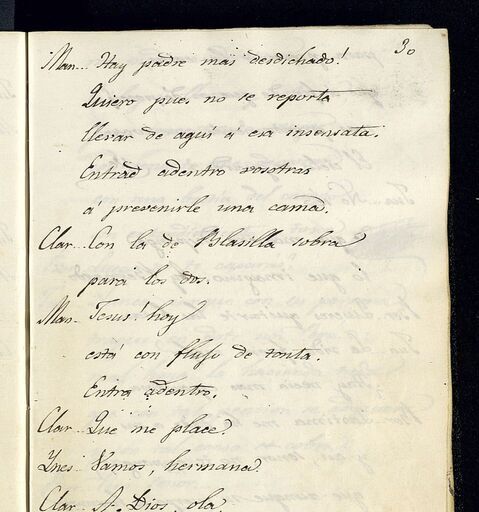 30
Man... Hay padre mas desdichado!
Quiero pues no se reporta
llevar de aquí á esa insensata.
Entrad adentro vosotras
á prevenirle una cama.
Clar... Con la de Blasilla sobra
para los dos.
Man... Jesus! hoy
está con flujo de tonta.
Entra adentro.
Clar... Que me place.
Ynes... Vamos, hermana.
Clar... A Dios, ola